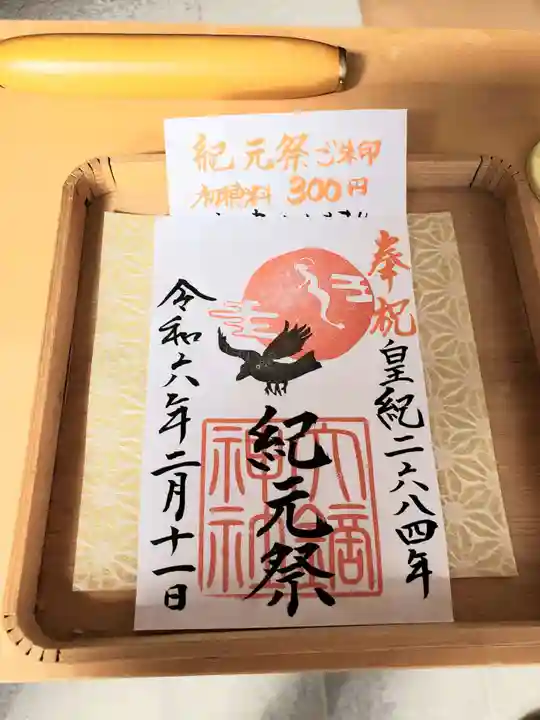 紀元祭ご朱印
初穂料 300円
奉祝
皇紀二六八四年
紀元祭
令和六年二月十一日